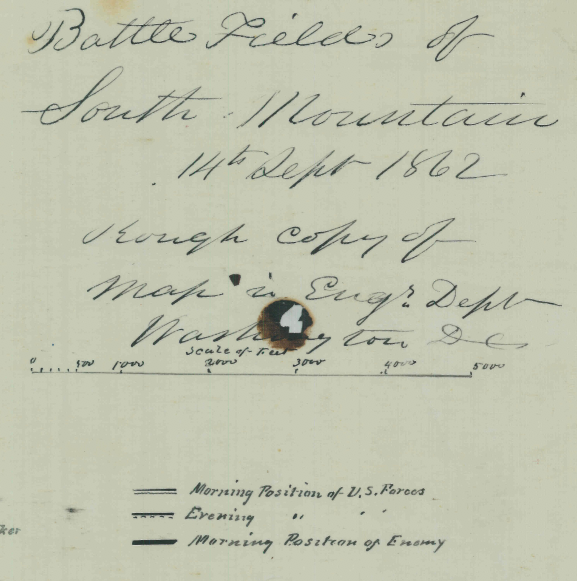 Battle Fields of
South Mountain
14th Sept 1862
Rough copy of
Map in Engr. Dept
Washington DC
Scale of Feet
0 500 1000 2000 3000 4000 5000
Morning Position of U.S. Forces
Evening " " "
Morning Position of Enemy
ker